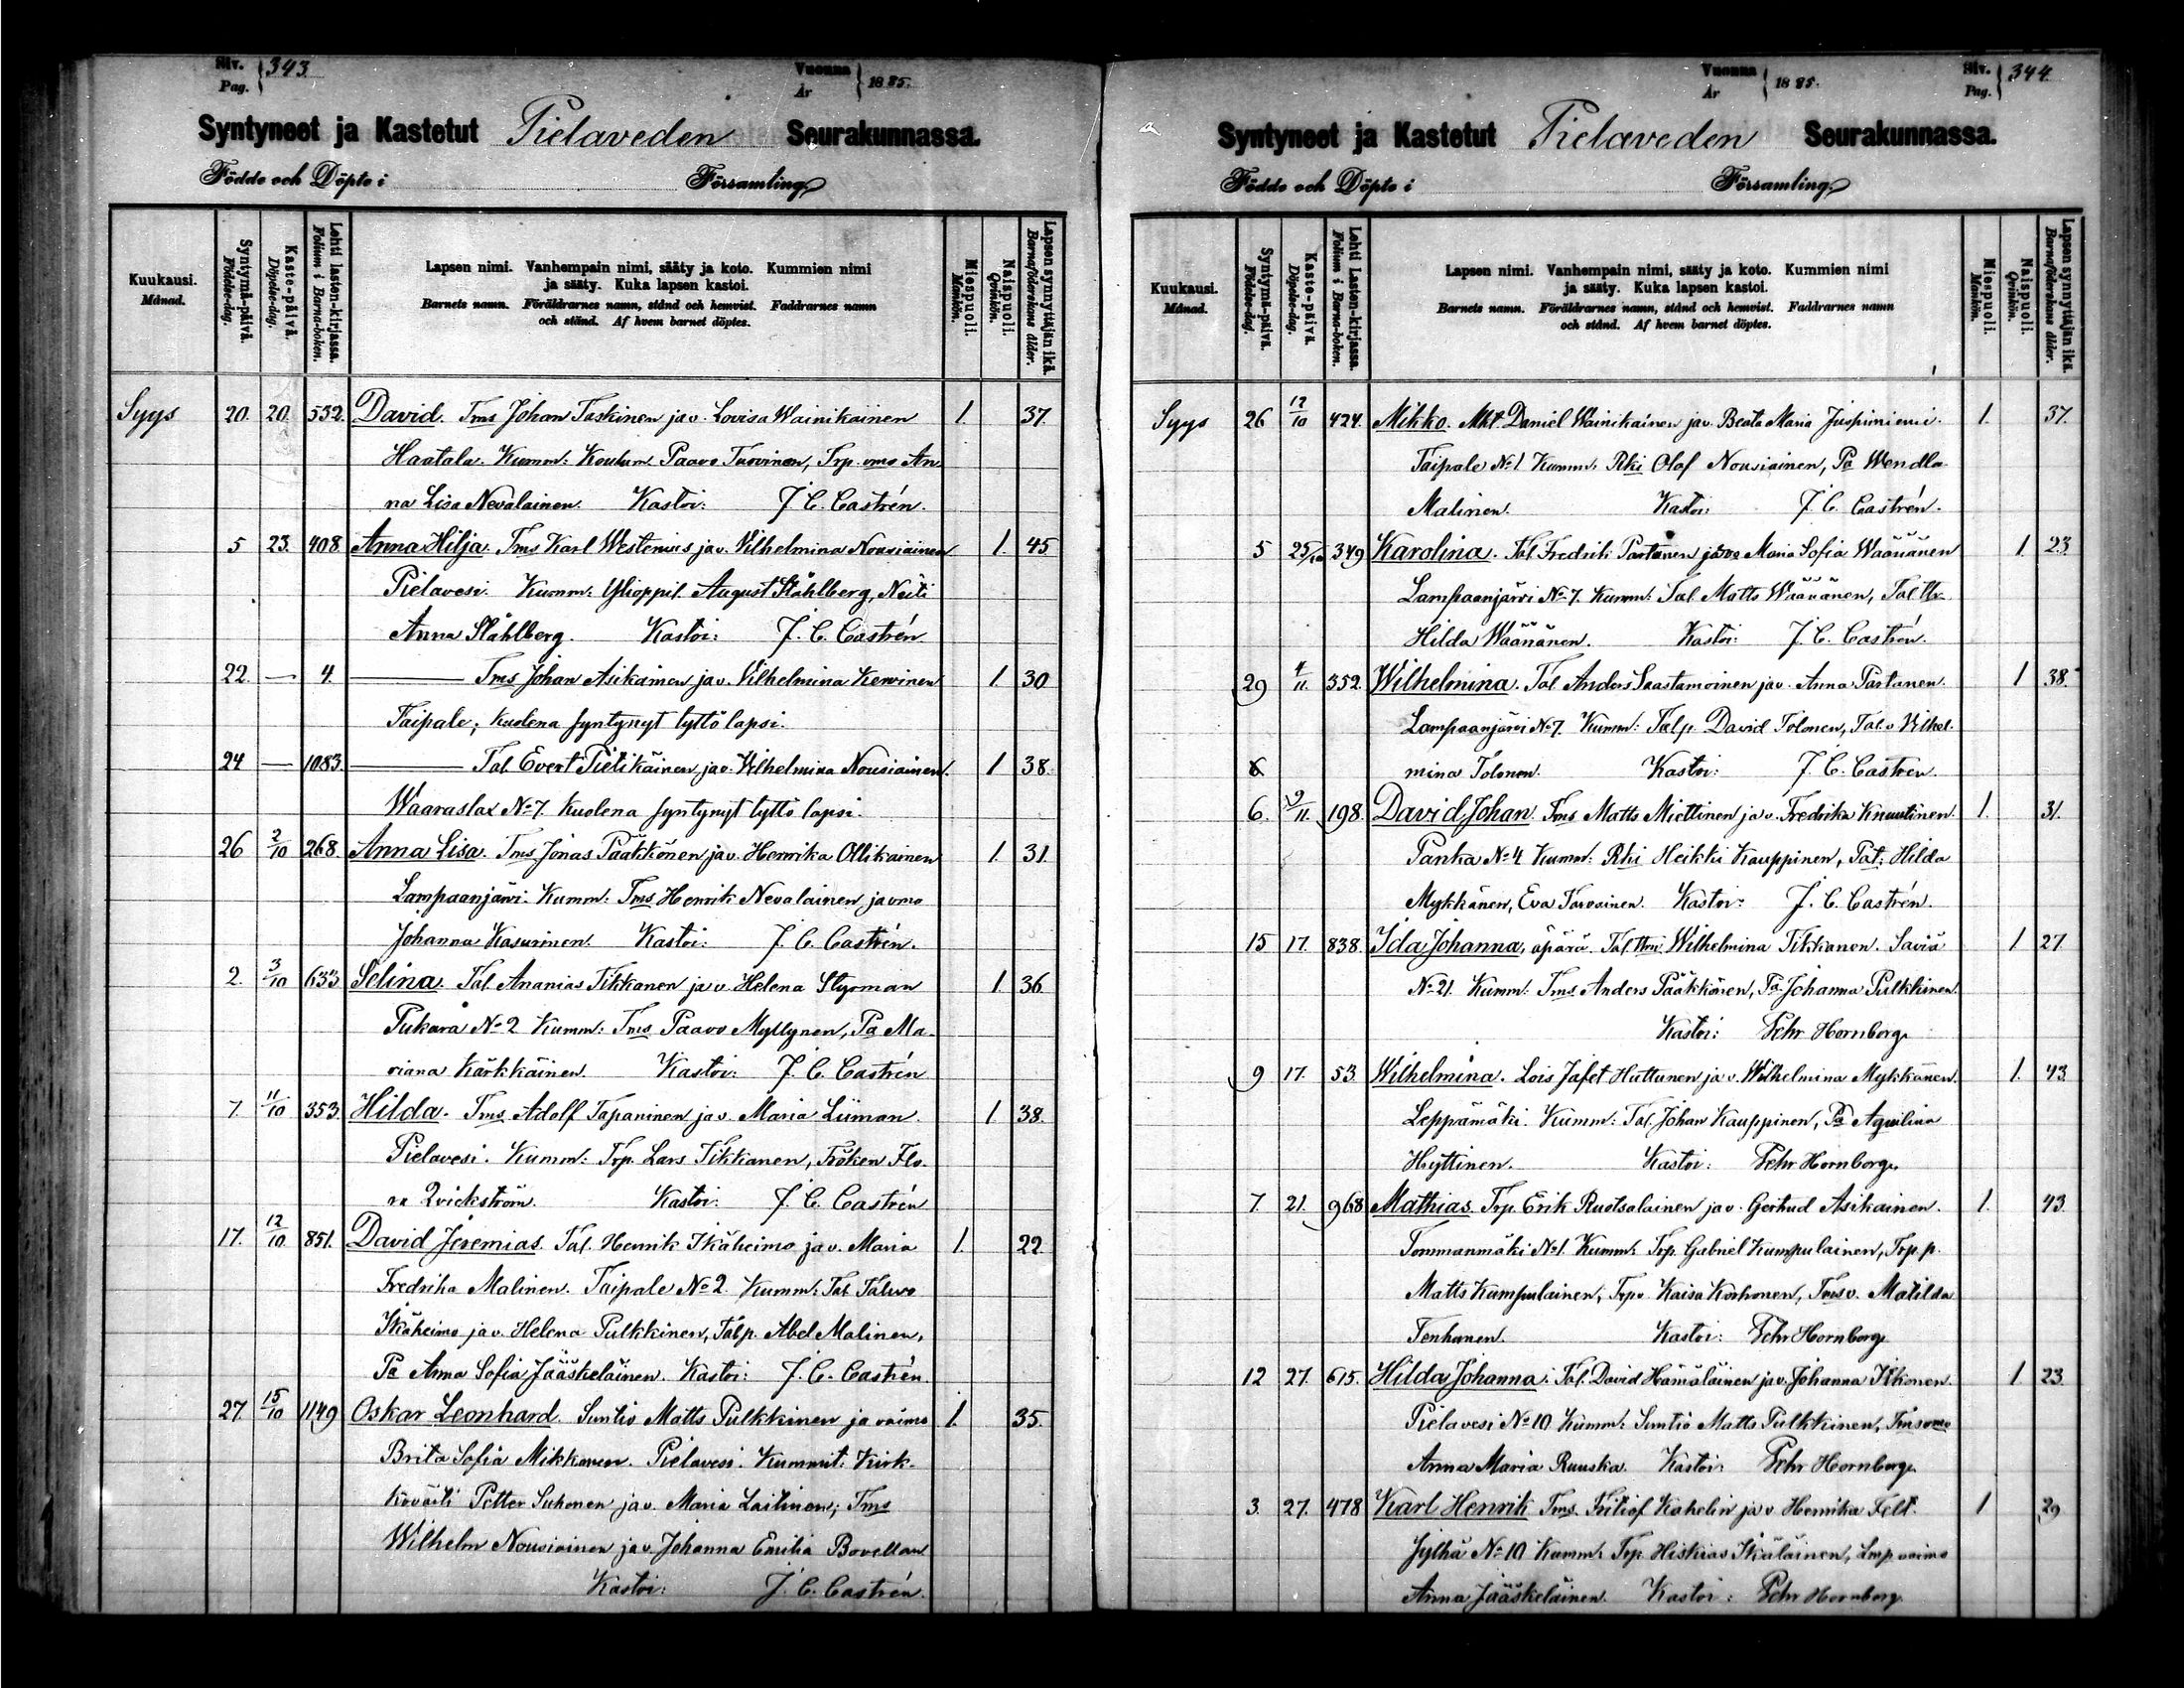 Siv. Pag. } 343.
Vuonna År } 1885.
Syntyneet ja Kastetut Pielaveden Seurakunnassa.
Födde och Döpte i Församling.
Kuukausi. Månad.
Syntymä-päivä. Födelse-dag.
Kaste-päivä. Döpelse-dag.
Lehti lasten-kirjassa. Folium i Barna-boken.
Lapsen nimi. Vanhempain nimi, sääty ja koto. Kummien nimi
ja sääty. Kuka lapsen kastoi.
Barnets namn. Föräldrarnes namn, stånd och hemvist. Faddrarnes namn
och stånd. Af hvem barnet döptes.
Miespuoli. Mankön.
Naispuoli. Qvinkön.
Lapsen synnyttäjän ikä. Barnaföderskans ålder.
Syys 20. 20. 532. David. Tms Johan Taskinen ja v. Lovisa Wainikainen 1. 37.
Haatala. Kumm: Koulum. Paavo Turvinen, Trp. vmo An
na Lisa Nevalainen. Kastoi: J. C. Castrén.
5 23. 408 Anna Hilja. Tms Karl Westenius ja v. Vilhelmina Nousiainen 1. 45
Pielavesi. Kumm: Ylioppil. August Ståhlberg, Neiti
Anna Ståhlberg. Kastoi: J. C. Castrén
22. — 4. — Tms Johan Asikainen ja v. Vilhelmina Kervinen 1. 30
Taipale; kuolena syntynyt tyttö lapsi.
24 — 1083. — Tal. Evert Pietikäinen ja v. Vilhelmina Nousiainen. 1 38.
Waaraslax No 7. Kuolena syntynyt tyttö lapsi.
26 2/10 268. Anna Lisa. Tms Jonas Pääkkönen ja v. Henrika Ollikainen 1. 31.
Lampaanjärvi. Kumm: Tms Henrik Nevalainen ja vmo
Johanna Kasurinen. Kastoi: J. C. Castrén.
2. 3/10 633 Selina. Tal. Ananias Tikkanen ja v. Helena Styrman 1. 36.
Pukara No 2 Kumm: Tms Paavo Myllynen, Pa Ma-
riana Kärkkäinen. Kastoi: J. C. Castrén
7. 11/10 353. Hilda. Tms Adolf Tapaninen ja v. Maria Liiman. 1. 38.
Pielavesi. Kumm: Trp. Lars Tikkanen, Fröken Flo-
ra Qvickström. Kastoi: J. C. Castrén
17. 12/10 851. David Jeremias. Tal. Henrik Ikäheimo ja v. Maria 1. 22.
Fredrika Malinen. Taipale No 2. Kumm: Tal.
Ikäheimo ja v. Helena Pulkkinen, Talp. Abel Malinen,
Pa Anna Sofia Jääskeläinen. Kastoi: J. C. Castrén.
27. 15/10 1149 Oskar Leonhard. Suntio Matts Pulkkinen ja vaimo 1. 35.
Brita Sofia Mikkonen. Pielavesi. Kummit: Kirk-
koväärti Petter Suhonen ja v. Maria Laitinen; Tms
Wilhelm Nousiainen ja v. Johanna Emilia Bovellan
Kastoi: J. C. Castrén.
Vuonna År } 1885.
Siv. Pag. } 344.
Syntyneet ja Kastetut Pielaveden Seurakunnassa.
Födde och Döpte i Församling.
Kuukausi. Månad.
Syntymä-päivä. Födelse-dag.
Kaste-päivä. Döpelse-dag.
Lehti Lasten-kirjassa. Folium i Barna-boken.
Lapsen nimi. Vanhempain nimi, sääty ja koto. Kummien nimi
ja sääty. Kuka lapsen kastoi.
Barnets namn. Föräldrarnes namn, stånd och hemvist. Faddrarnes namn
och stånd. Af hvem barnet döptes.
Miespuoli. Mankön.
Naispuoli. Qvinkön.
Lapsen synnyttäjän ikä. Barnaföderskans ålder.
Syys 26 12/10 424. Mikko. Mkt. Daniel Wainikainen ja v. Beata Maria Juspiniemi. 1. 37.
Taipale No 1 Kumm: Rki Olof Nousiainen, Pa Wendla
Malinen. Kastoi: J. C. Castrén.
5 25/10 349 Karolina. Tal. Fredrik Partanen ja v. Maria Sofia Wäänänen 1 23
Lampaanjärvi No 7. Kumm: Tal. Matts Wäänänen, Tal. ttr
Hilda Wäänänen. Kastoi: J. C. Castrén.
29 4/11. 352. Wilhelmina. Tal. Anders Saastamoinen ja v. Anna Partanen. 1 38.
Lampaanjärvi No 7. Kumm: Talp. David Tolonen, Tal. v Vilhel-
mina Tolonen. Kastoi: J. C. Castrén.
6. 9/11. 198. David Johan. Tms Matts Miettinen ja v. Fredrika Knuutinen. 1. 31.
Panka No 4 Kumm: Rki Heikki Kauppinen, Pat: Hilda
Mykkänen, Eva Tarvainen. Kastoi: J. C. Castrén.
15 17. 838. Ida Johanna, äpärä. Tal. ttrn: Wilhelmina Tikkanen. Saviä 1 27
No 21. Kumm: Tms Anders Pääkkönen, Pa Johanna Pulkkinen.
Kastoi: Fehr Hornborg.
9 17. 53. Wilhelmina. Lois Jafet Huttunen ja v. Wilhelmina Mykkänen. 1. 43.
Leppämäki. Kumm: Tal. Johan Kauppinen, Pa Aqvilina
Hyttinen. Kastoi: Fehr Hornborg.
7. 21. 968 Mathias. Trp. Erik Ruotsalainen ja v. Gertrud Asikainen. 1. 43.
Tommanmäki No 1. Kumm: Trp. Gabriel Kumpulainen, Trp. p.
Matts Kumpulainen, Trp v Kaisa Korhonen, Tms v. Matilda
Tenhunen. Kastoi: Fehr Hornborg.
12 27. 615. Hilda Johanna. Tal. David Hämäläinen ja v. Johanna Itkonen. 1 23.
Pielavesi No 10 Kumm: Suntio Matts Pulkkinen, Tms vmo
Anna Maria Ruuska. Kastoi: Fehr Hornborg.
3. 27. 478 Karl Henrik Tms. Fritiof Kahelin ja v Henrika Felt. 1 29
Jylhä No 10 Kumm: Trp. Hiskias Ikäläinen, Lmp vaimo
Anna Jääskeläinen. Kastoi: Fehr Hornborg.